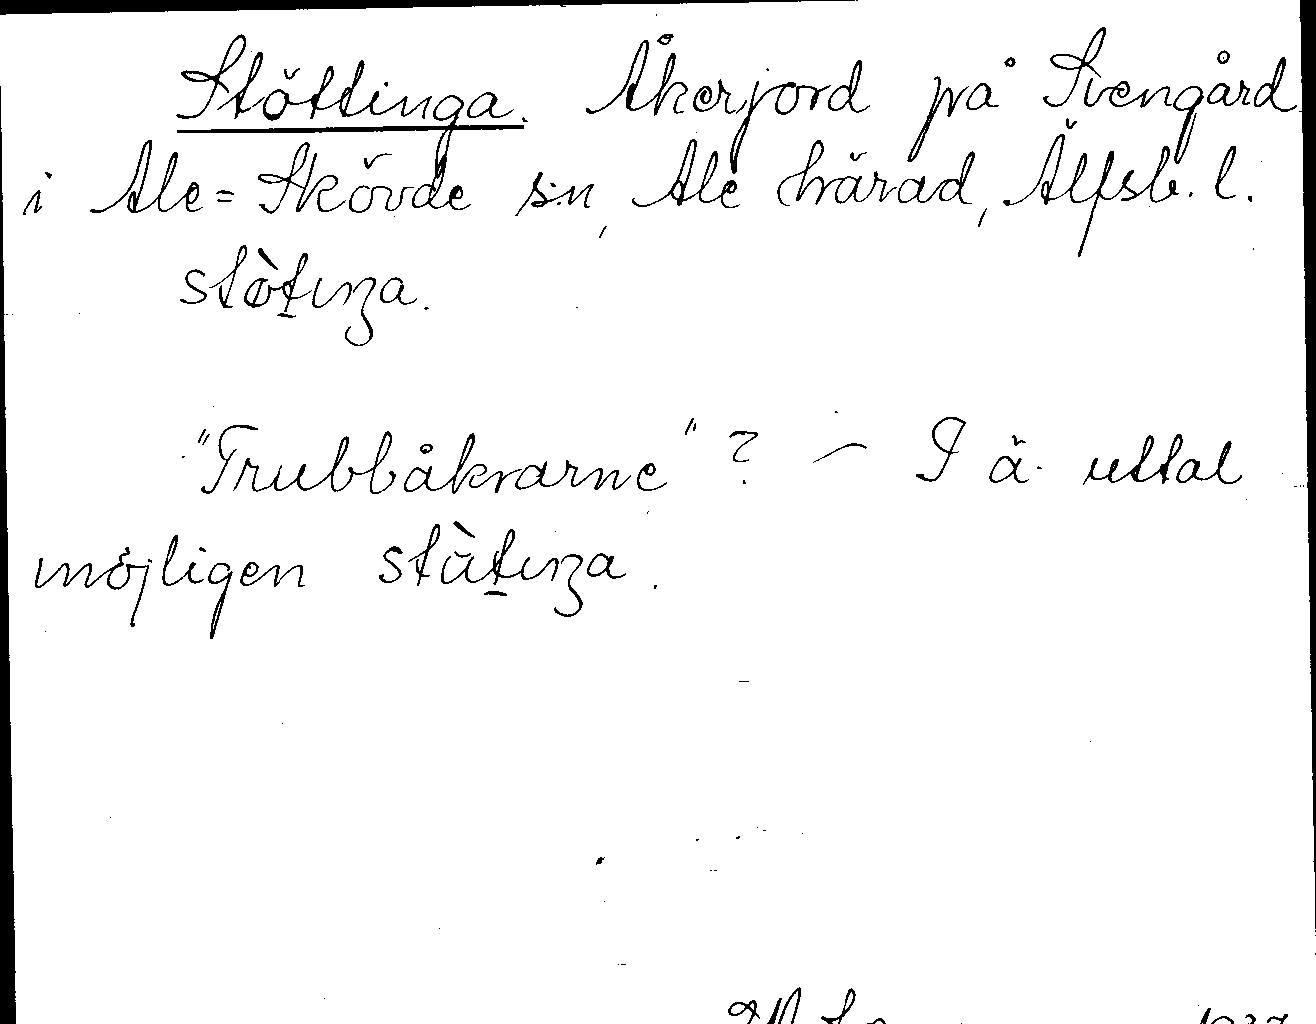 Stöttinga. Åkerjord på Svengård
i Ale=Skövde s:n, Ale härad, Älfsb. l.
stø̀tiŋa.
"Trubbåkrarne"? – I ä. uttal
möjligen stùtiŋa.